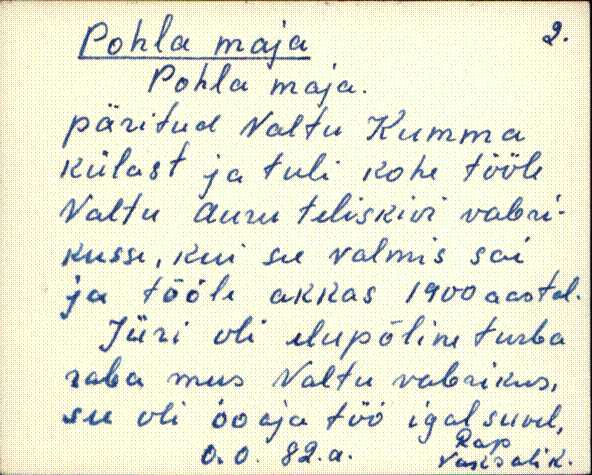 Pohla maja 2.
Pohla maja.
päritud Valtu Kumma
külast ja tuli kohe tööle
Valtu Auru teliskivi vabri-
kusse, kui see valmis sai
ja tööle akkas 1900 aastal.
Jüri oli elupõline turba
raba mus Valtu vabrikus,
see oli ooaja töö igal suvel,
O. O. 82. a. Rap
Vaksalik.